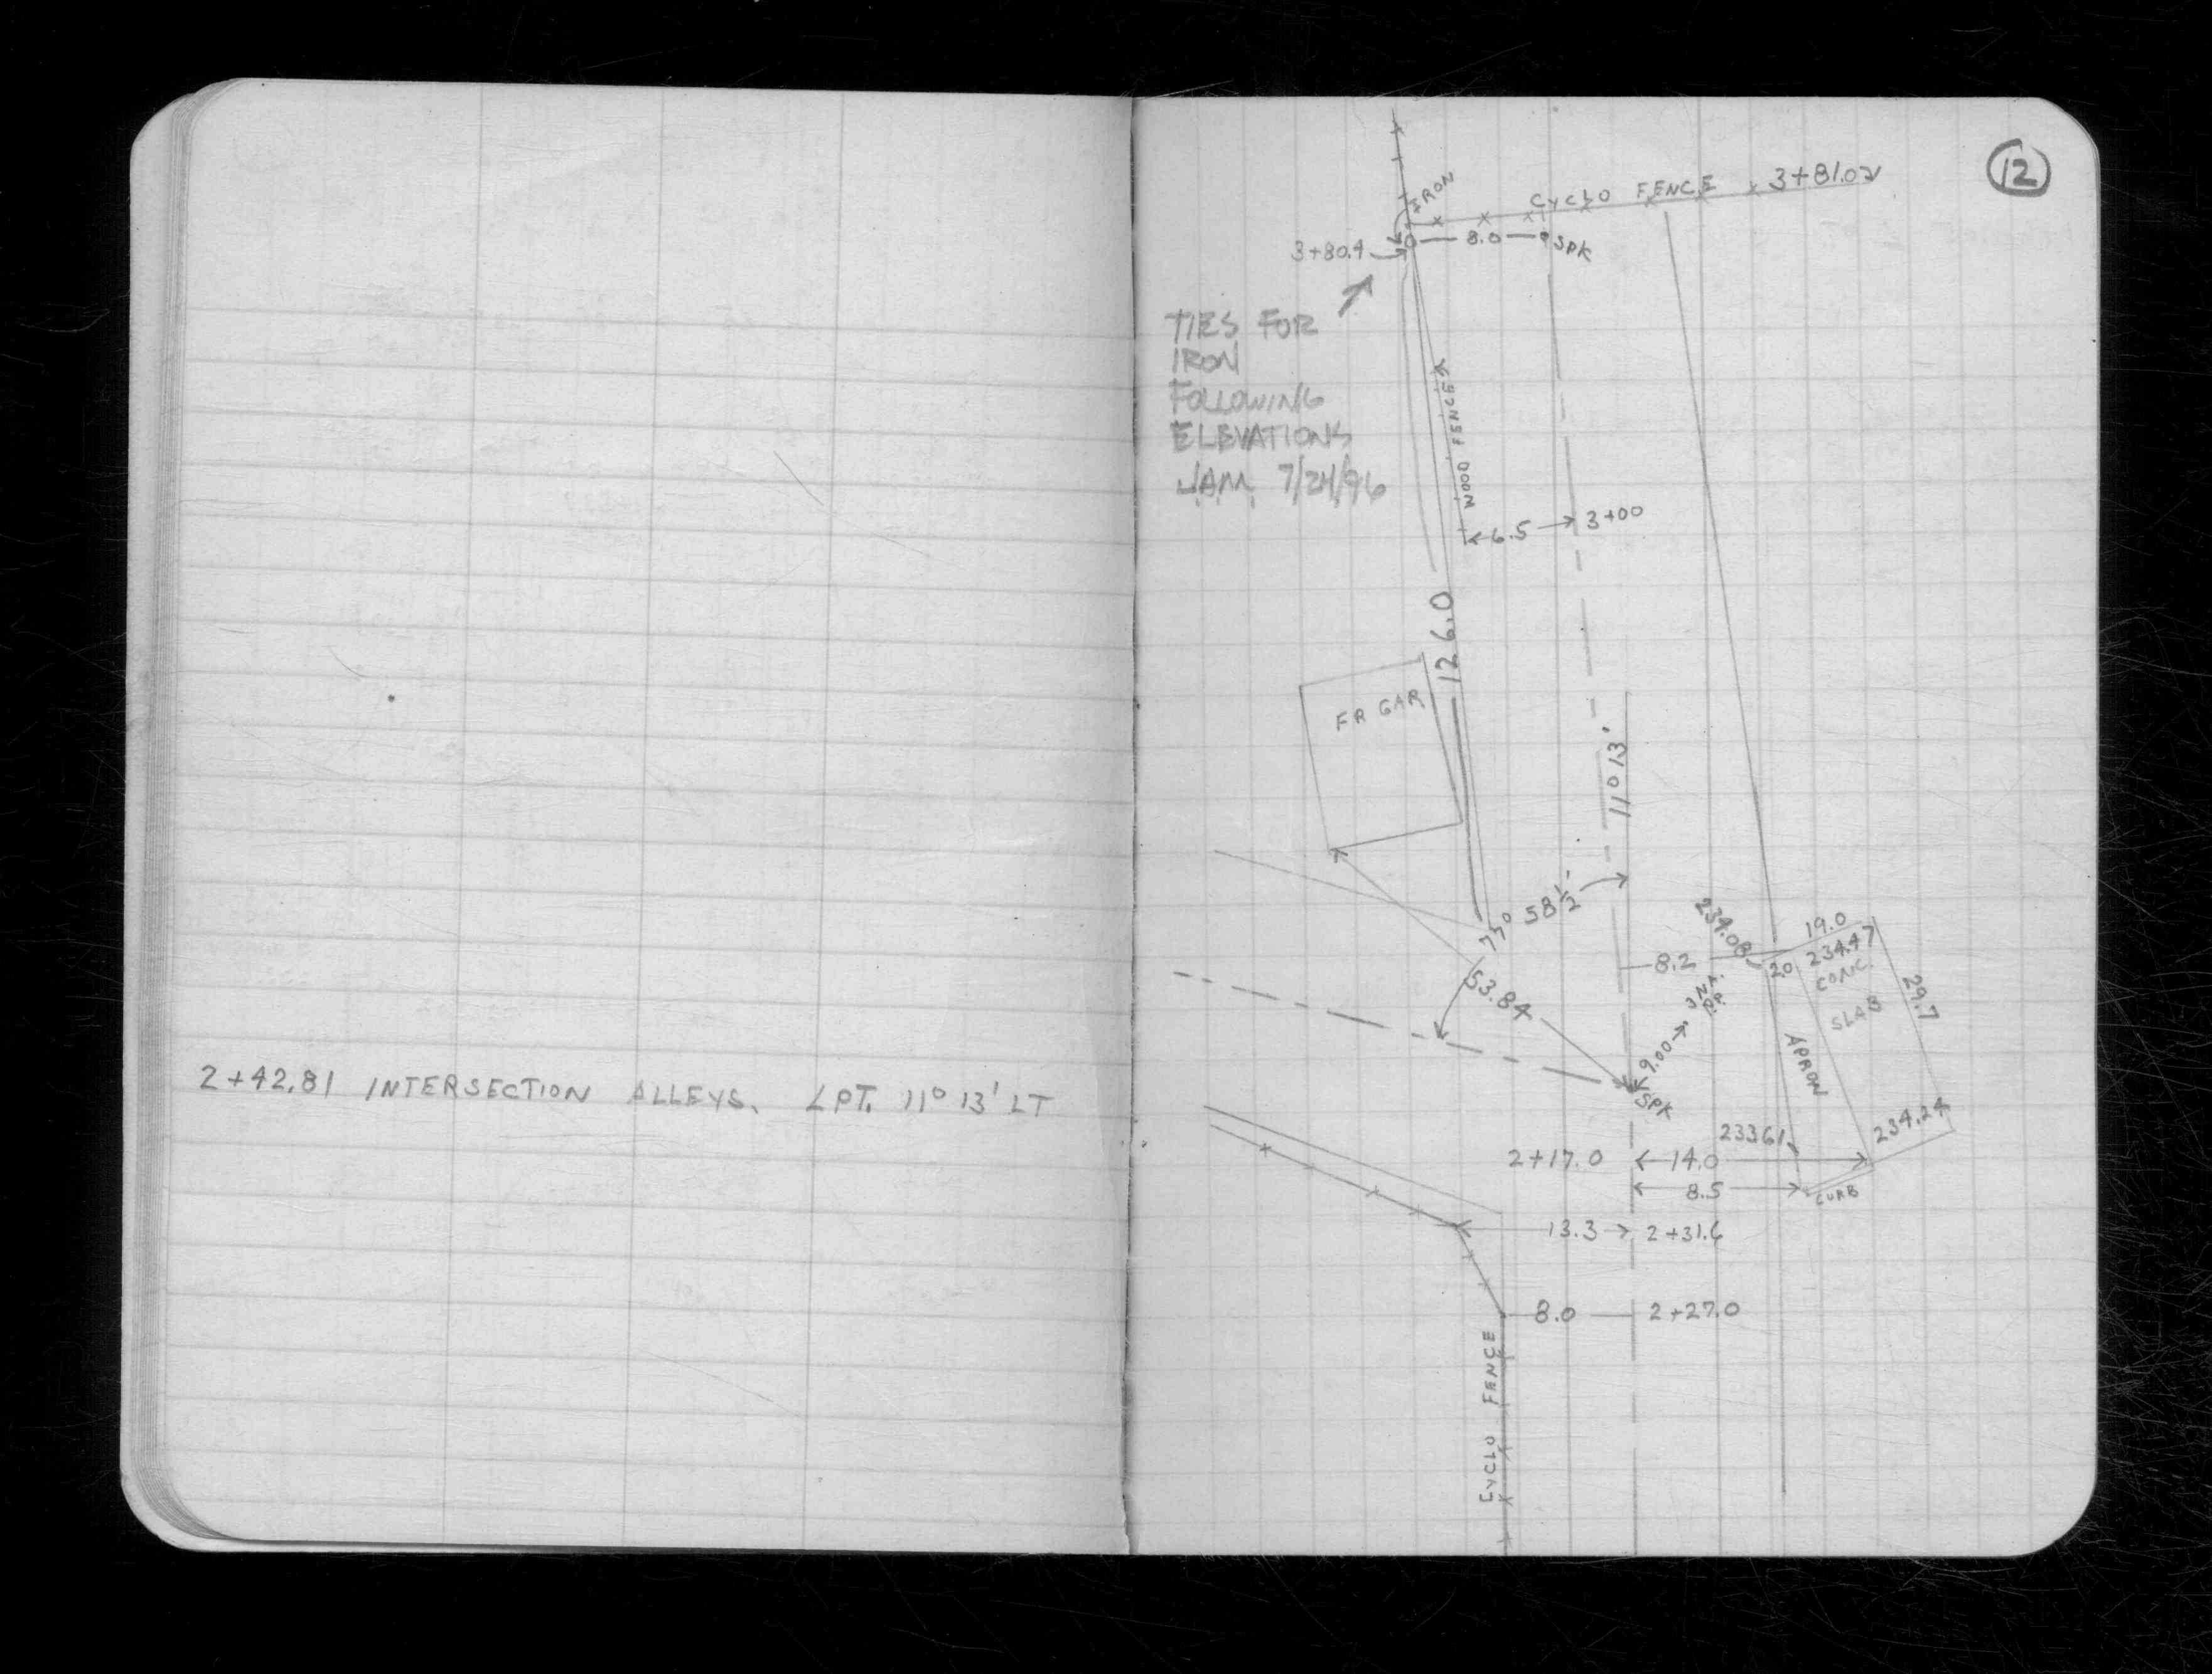 2+42.81 INTERSECTION ALLEYS. ∠PT. 11° 13' LT
12
IRON
CYCLO FENCE 3+81.02
3+80.4
8.0
SPK
TIES FOR
IRON
FOLLOWING
ELEVATIONS
JAM 7/24/96
WOOD FENCE
6.5 3+00
126.0
FR GAR
11° 13'
77° 58½'
53.84
234.08
19.0
8.2
2.0
234.47
CONC.
SLAB
29.7
9.00
SPK
APRON
233.61
234.24
2+17.0 14.0
8.5
CURB
13.3 2+31.6
8.0 2+27.0
CYCLO FENCE